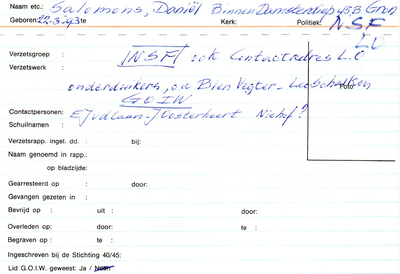 Naam etc.: Salomons, Daniël Binnen Damsterdiep 45B Gron
Geboren: 22-3-43 te Kerk: Politiek: NSF
LO
Verzetsgroep : NSF ook Contactadres L.O
Verzetswerk : onderduikers, oa Bien Vegter -
GOIW Foto
Contactpersonen: Niehof?
Schuilnamen :
Verzetsrapp. ingel. dd. : bij:
Naam genoemd in rapp.:
op bladzijde:
Gearresteerd op : door:
Gevangen gezeten in :
Bevrijd op : uit : door:
Overleden op: door: te :
Begraven op : te :
Ingeschreven bij de Stichting 40/45:
Lid G.O.I.W. geweest: Ja / Neen